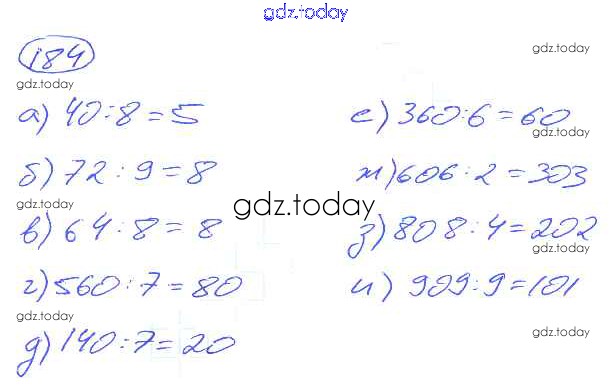 gdz.today
184
gdz.today
gdz.today
а) 40:8=5
е) 360:6=60
gdz.today
б) 72:9=8
ж) 606:2=303
gdz.today
gdz.today
в) 64:8=8
з) 808:4=202
gdz.today
г) 560:7=80
и) 909:9=101
gdz.today
gdz.today
д) 140:7=20